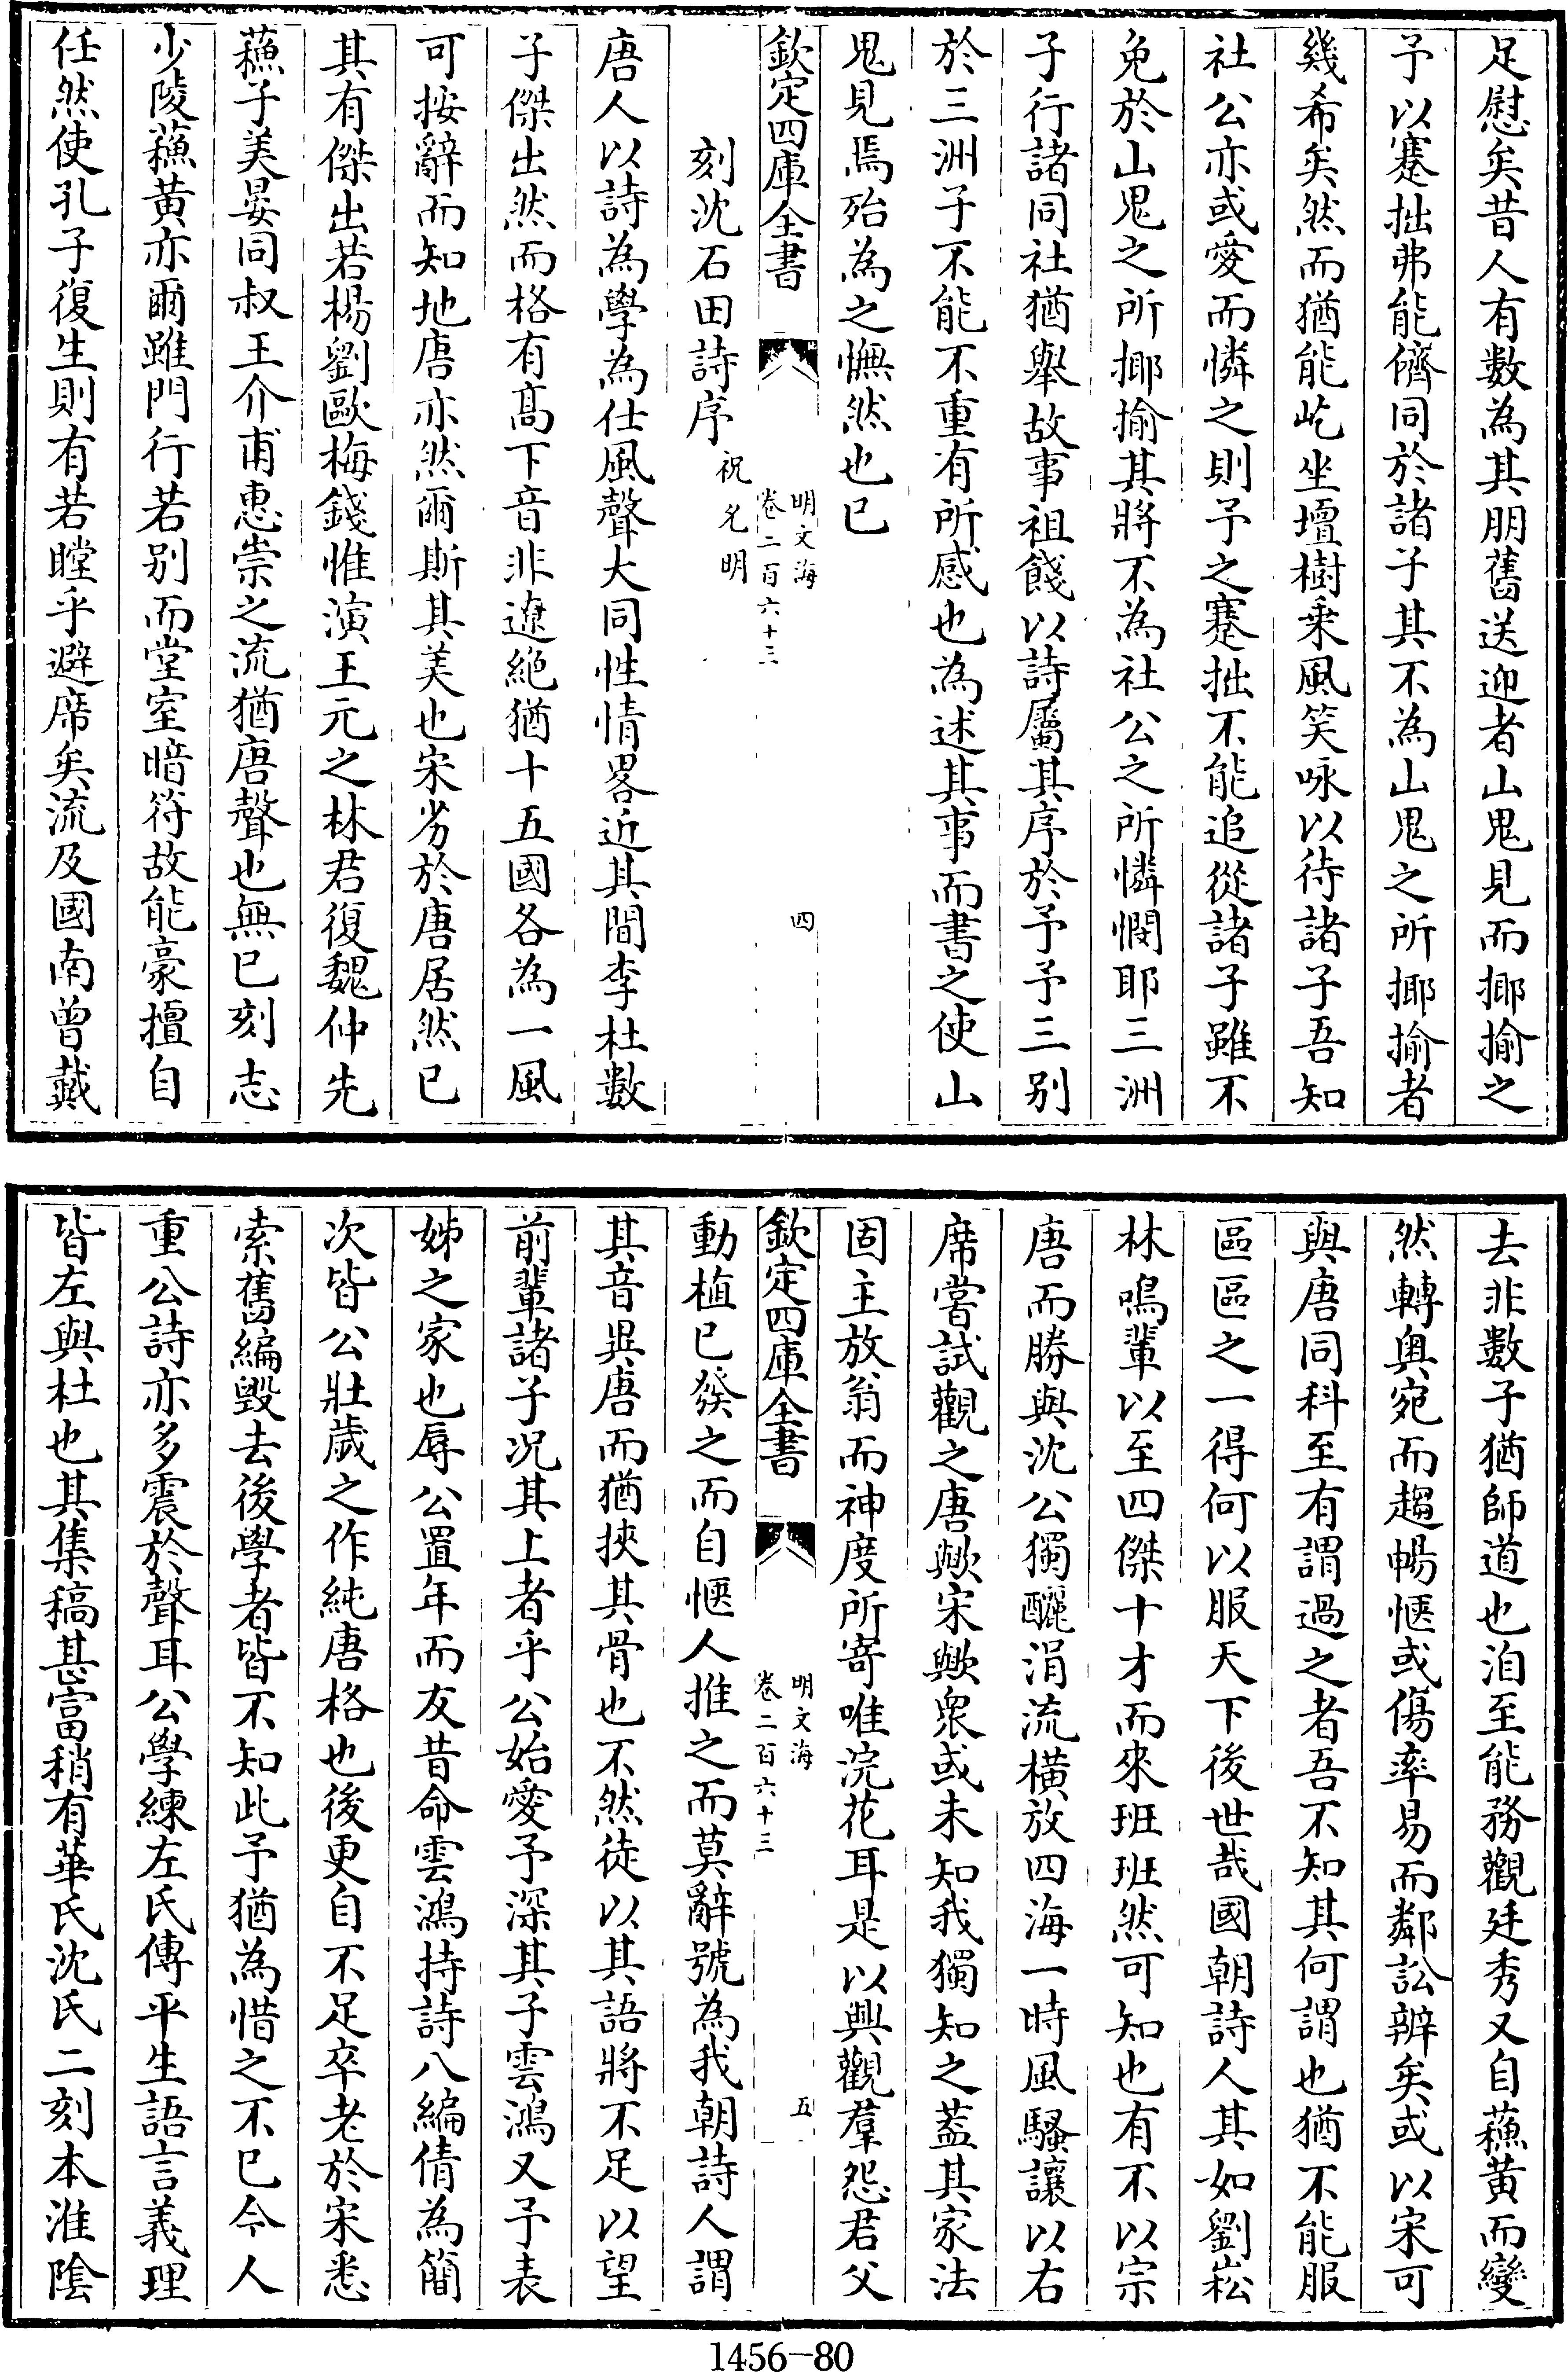 足慰矣昔人有數為其朋舊送迎者山鬼見而揶揄之
予以蹇拙弗能儕同於諸子其不為山鬼之所揶揄者
幾希矣然而猶能屹坐壇樹乘風笑咏以待諸子吾知
社公亦或愛而憐之則予之蹇拙不能追從諸子雖不
免於山鬼之所揶揄其將不為社公之所憐憫耶三洲
子行諸同社猶舉故事祖餞以詩屬其序於予予三别
於三洲子不能不重有所感也為述其事而書之使山
鬼見焉殆為之憮然也已
欽定四庫全書
明文海
卷二百六十三
四
刻沈石田詩序
祝允明
唐人以詩為學為仕風聲大同性情畧近其間李杜數
子傑出然而格有髙下音非遼絶猶十五國各為一風
可按辭而知地唐亦然爾斯其美也宋劣於唐居然已
其有傑出若楊劉歐梅錢惟演王元之林君復魏仲先
蘓子美晏同叔王介甫惠崇之流猶唐聲也無已刻志
少陵蘓黄亦爾雖門行若别而堂室暗符故能豪擅自
任然使孔子復生則有若瞠乎避席矣流及國南曾戴
去非數子猶師道也洎至能務觀廷秀又自蘓黄而變
然轉奥宛而趨暢愜或傷率易而鄰訟辨矣或以宋可
與唐同科至有謂過之者吾不知其何謂也猶不能服
區區之一得何以服天下後世哉國朝詩人其如劉崧
林鳴輩以至四傑十才而來班班然可知也有不以宗
唐而勝與沈公獨釃涓流横放四海一時風騷讓以右
席嘗試觀之唐歟宋歟衆或未知我獨知之葢其家法
固主放翁而神度所寄唯浣花耳是以興觀羣怨君父
欽定四庫全書
明文海
卷二百六十三
五
動植已發之而自愜人推之而莫辭號為我朝詩人謂
其音異唐而猶挾其骨也不然徒以其語將不足以望
前輩諸子况其上者乎公始愛予深其子雲鴻又予表
姊之家也辱公置年而友昔命雲鴻持詩八編倩為簡
次皆公壯歲之作純唐格也後更自不足卒老於宋悉
索舊編毁去後學者皆不知此予猶為惜之不已今人
重公詩亦多震於聲耳公學練左氏傳平生語言義理
皆左與杜也其集稿甚富稍有華氏沈氏二刻本淮陰
1456-80